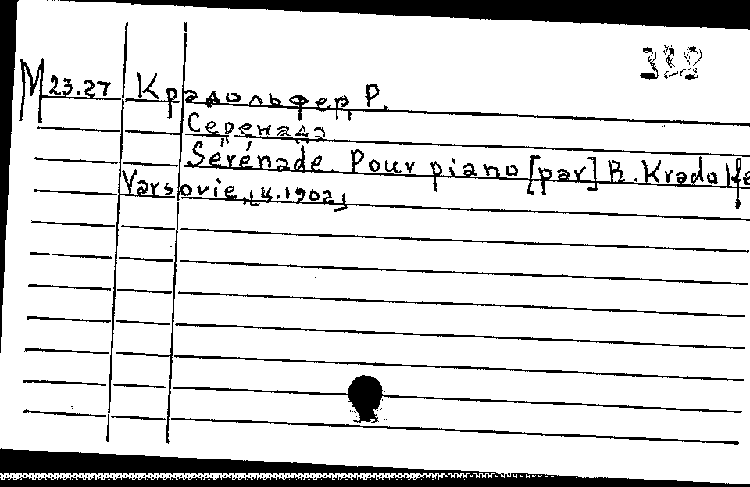 338
M 23.27 Крадольфер Р.
Серенада
Sérénade. Pour piano [par] R. Kradolfe
Varsovie, [ц. 1902]